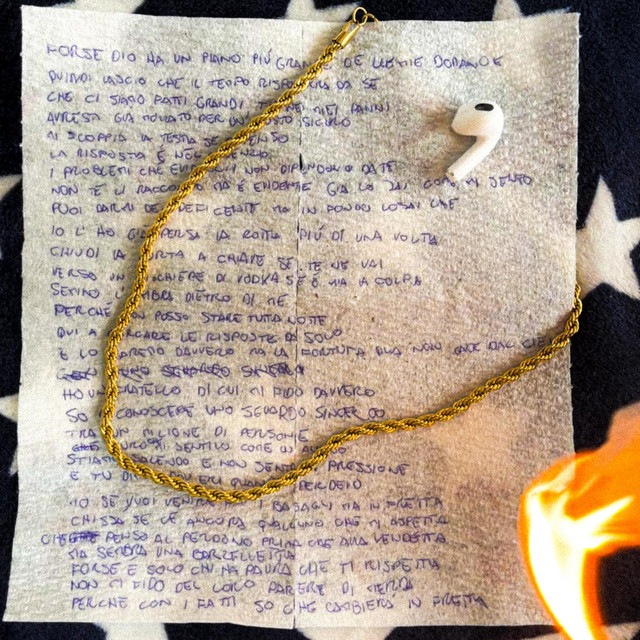 FORSE DIO HA UN PIANO PIÚ GRAN DE LLE MIE DOMANDE
QUINDI LASCIO CHE IL TEMPO RISPONDERÁ DA SÉ
CHE CI SIAMO FATTI GRANDI NEI PANNI
GIÁ TROVATO PER UN POSTO SICURO
MI SCOPPIA LA TESTA SE PENSO
LA RISPOSTA É NEL SILENZIO
I PROBLEMI CHE NON DIPENDONO DA TE
NON TE LI RACCONTO MA É EVIDENTE GIÁ LO SAI COME MI SENTO
PUOI DARMI DEL DEFICENTE MA IN FONDO LO SAI CHE
IO L'HO GIÁ PERSA LA ROTTA PIÚ DI UNA VOLTA
CHIUDI LA PORTA A CHIAVE SE TE NE VAI
VERSO UN BICCHIERE DI VODKA SE É MIA LA COLPA
SENTO L'OMBRA DIETRO DI ME
PERCHÉ POSSO STARE TUTTA NOTTE
QUI A CERCARE LE RISPOSTE DA SOLO
E LO SAPETO DAVVERO MA LA FORTUNA MIA NON CADE DAL CIELO
UNO SGUARDO SINCERO
HO UN FRATELLO DI CUI MI FIDO DAVVERO
SO RICONOSCERE UNO SGUARDO SINCERO
TRA UN MILIONE DI PERSONE
SENTIVO COME UN
STIAMO E NON SENTO PRESSIONE
E TU ERI QUANDO PERDEVO
IO SE VUOI VENIRE I BAGAGLI MA IN FRETTA
CHISSÁ SE C'É ANCORA QUALCUNO CHE MI ASPETTA
CHE PENSO AL PERDONO PRIMA CHE ALLA VENDETTA
MIA SEMBRA UNA BARZELLETTA
FORSE É SOLO CHI HA PAURA CHE TI RISPETTA
NON MI FIDO DEL LORO PARERE DI MERDA
PERCHÉ CON I FATTI SO CHE CAMBIERÁ IN FRETTA